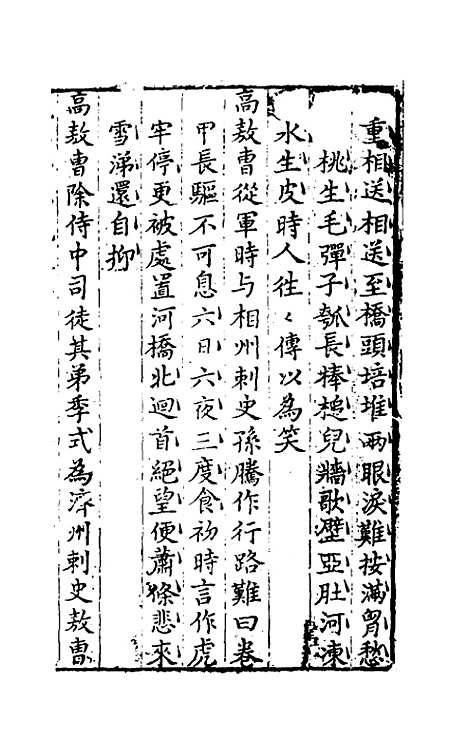 重相送相送至橋頭培堆兩眼淚難按滿胷愁
桃生毛彈子瓠長棒槌兒墻欹壁亞肚河凍
水生皮時人徃〻傳以為笑
高敖曹從軍時与相州刺史孫騰作行路難曰卷
甲長驅不可息六日六夜三度食初時言作虎
牢停更被處置河橋北迴首絕望便蕭條悲來
雪涕還自抑
高敖曹除侍中司徒其弟季式為濟州刺史敖曹